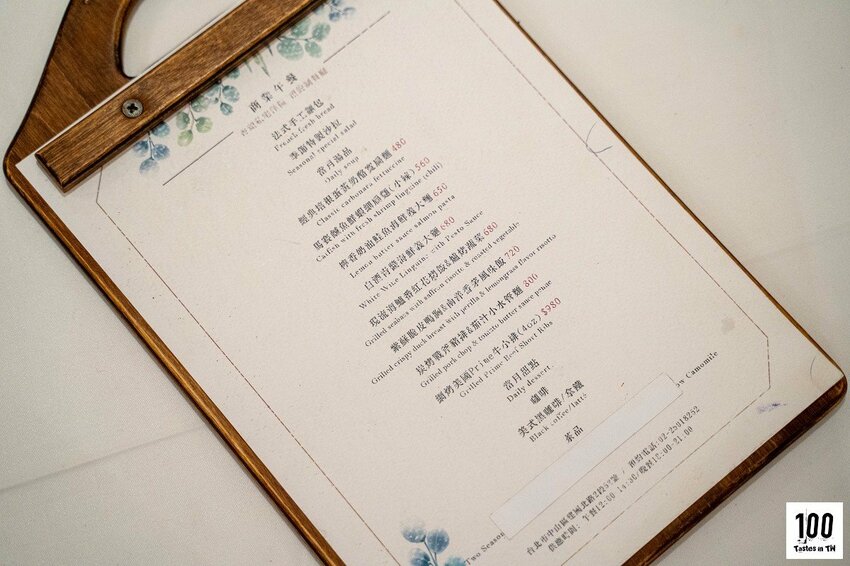 商業午餐
法式手工麵包
French fresh bread
季節特製沙拉
Seasonal special salad
當月湯品
Daily soup
經典培根蛋黃奶酪寬扁麵 480
Classic carbonara fettuccine
560
Catfish with fresh shrimp linguine (chili)
檸香奶油鮭魚海鮮義大麵 650
Lemon butter sauce salmon pasta
白酒青醬海鮮義大麵 680
White Wine Linguine with Pesto Sauce
680
Grilled seabass with saffron risotto & roasted vegetable
紫蘇脆皮鴨胸&南洋香茅風味飯 720
Grilled crispy duck breast with perilla & lemongrass flavor risotto
炭烤戰斧豬排&茄汁小水管麵 800
Grilled pork chop & tomato butter sauce penne
鍘烤美國Prime牛小排(4oz) $980
Grilled Prime Beef Short Ribs
當月甜點
Daily dessert
咖啡
美式黑咖啡/拿鐵
Black coffee/latte
茶品
ow Camomile
Two Season
台北市中山區 / 預約電話:02-25018252
供應時間: 午餐12:00-14:30/晚餐12:00-21:00
100
Tastes in TW